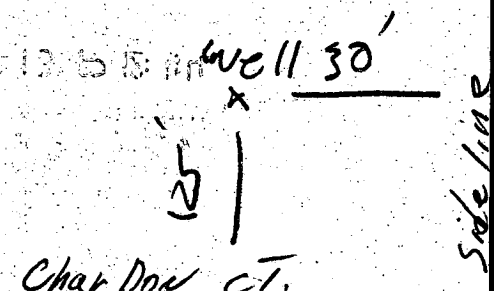 well 30'
x
Side line
Char Don CT.